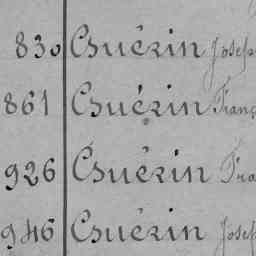 830 Guérin Josep
861 Guérin Franç
926 Guérin Fra
946 Guérin Josep